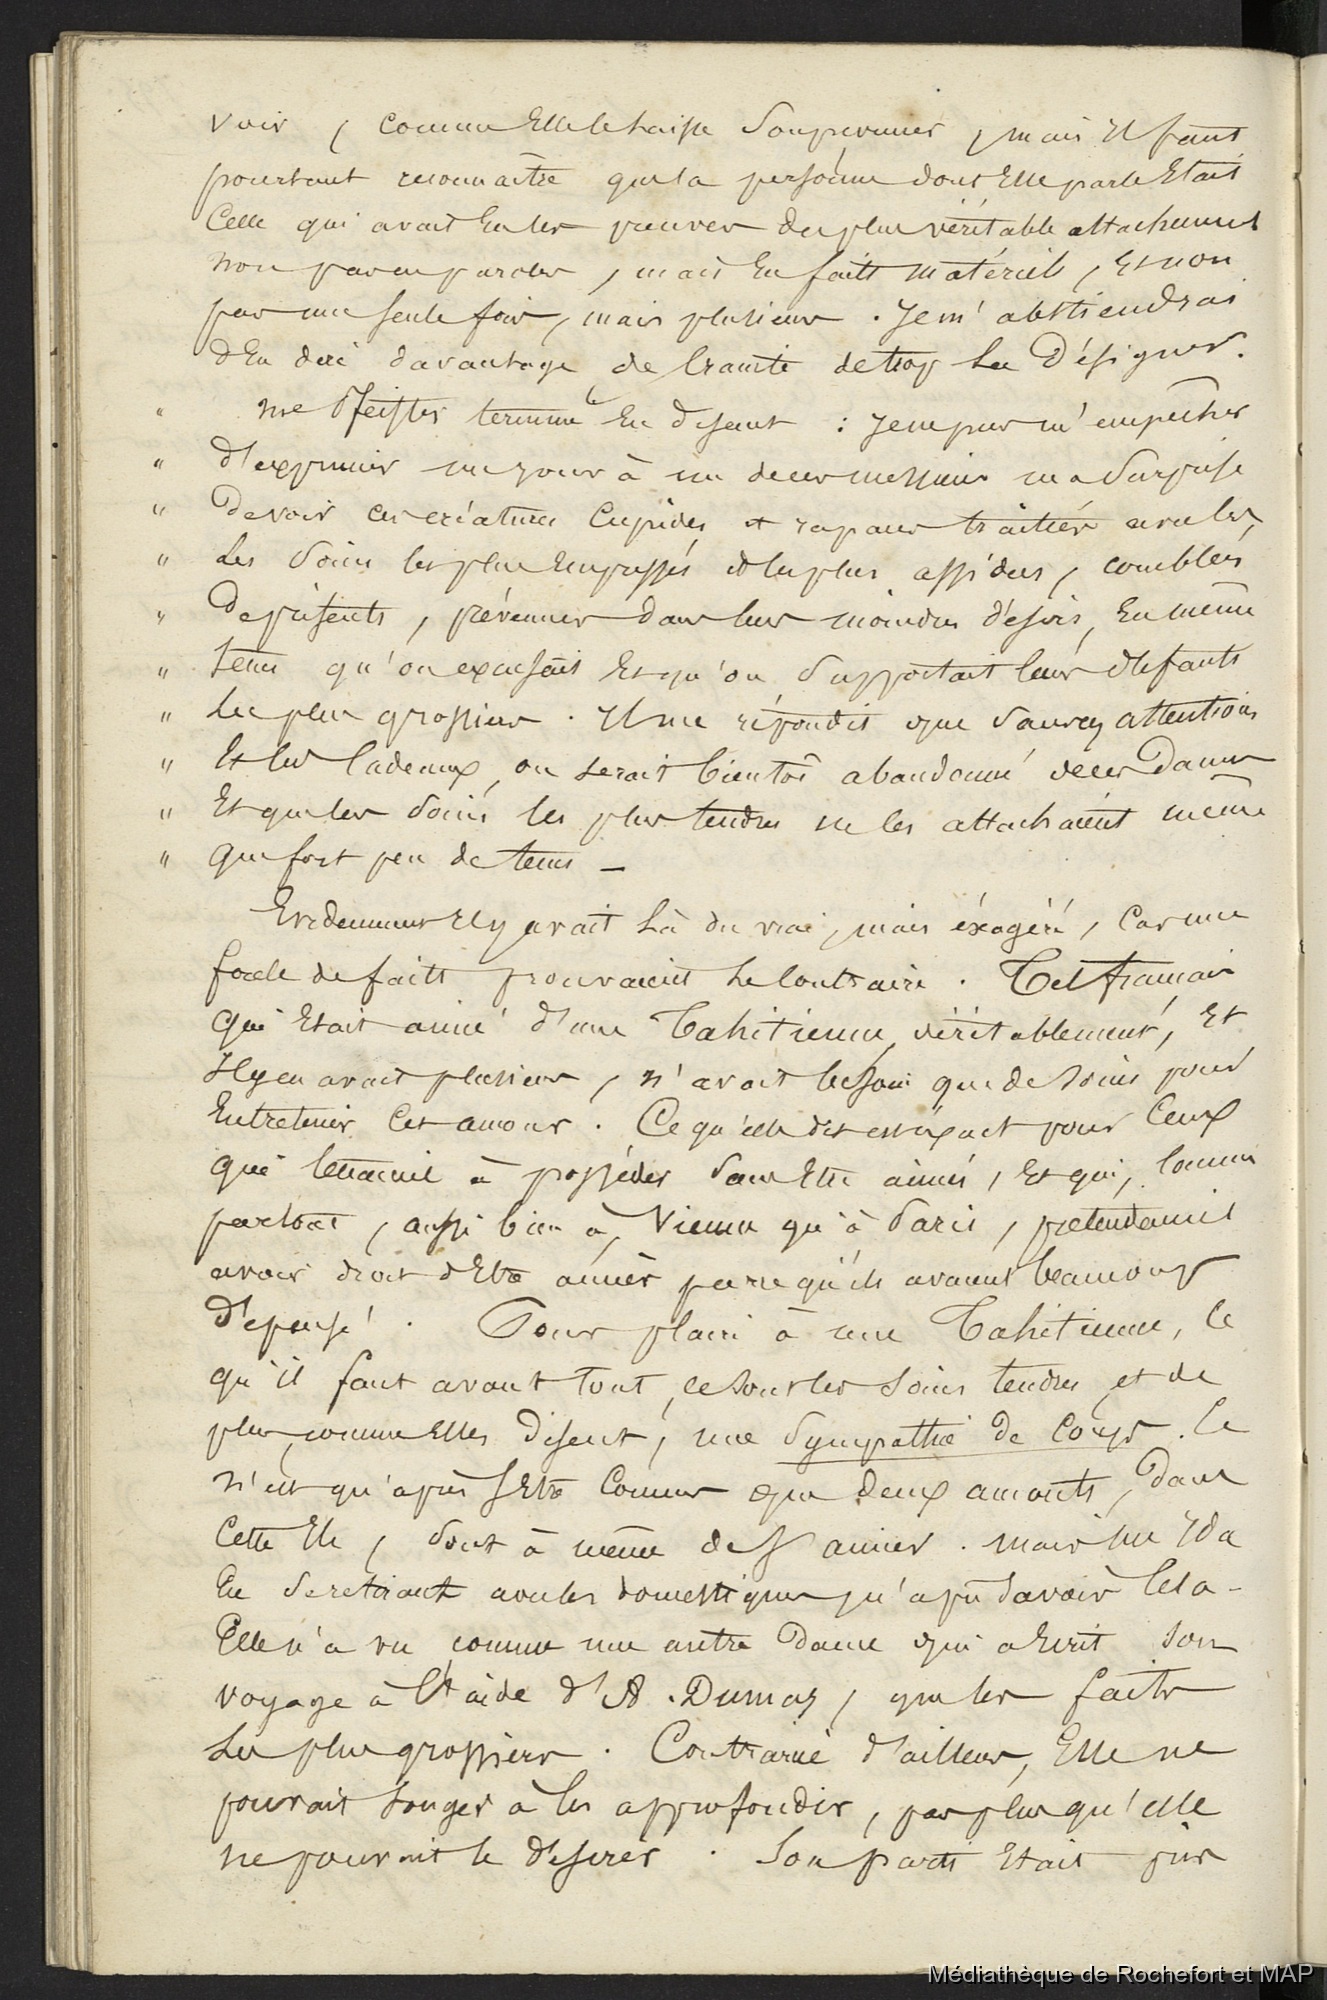 voir, comme Elle le laisse soupçonner, mais Il faut
pourtant reconnaître que la personne dont Elle parle Etait
Celle qui avait Eu les preuves du plus véritable attachement
non pas en paroles, mais En faits matériels, Et non
pas une seule fois, mais plusieurs. Je m'abstiendrai
d'En dire davantage de Crainte de trop La Désigner.
" me Pfeiffer termine En disant : Je ne pus m'empêcher
" d'exprimer un jour à un de ces messieurs ma Surprise
" De voir ces créatures Cupides et rapaces traitées avec les
" Les Soins les plus Empressés et les plus assidus, comblées
" De présents, prévenues dans leurs moindres désirs, En même
" tems qu'on excusait Et qu'on Supportait leurs défauts
" Les plus grossiers. Il me répondit que Sans ces attentions
" Et les Cadeaux, on serait bientôt abandonné de ces Dames
" Et que les Soins les plus tendres ne les attachaient même
" Que fort peu de tems _
Evidemment Il y avait Là du vrai, mais éxagéré, Car une
foule de faits prouvaient Le Contraire. Tel français
Qui Etait aimé d'une Tahitienne véritablement, Et
Il y en avait plusieurs, n'avait besoin que de soins pour
Entretenir Cet amour. Ce qu'elle dit est éxact pour Ceux
Qui tenaient à posséder Sans Etre aimés, Et qui, Comme
partout, aussi bien à Vienne qu'à Paris, prétendaient
avoir droit d'Etre aimés parce qu'ils avaient beaucoup
Dépensé. Pour plaire à une Tahitienne, Ce
qu'il faut avant tout, ce sont les soins tendres et de
plus, comme Elles disent, une Sympathie de Corps. Ce
n'est qu'après s'Etre Connus que deux amants, Dans
Cette Ile, Sont à même de s'aimer. mais me Ida
En Se retirant avec les domestiques n'a pu Savoir Cela.
Elle n'a vu comme une autre Dame qui a Ecrit Son
voyage à l'aide d'A. Dumas, que les faits
Les plus grossiers. Contrariée d'ailleurs, Elle ne
pouvait songer à les approfondir, pas plus qu'elle
ne pouvait le désirer. Son parti Etait pris
Médiathèque de Rochefort et MAP